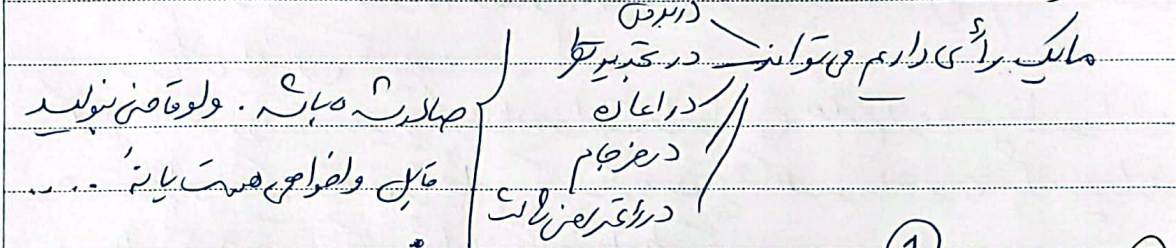 در بدوی
ما یک رأی داریم می‌تواند در تجدید نظر
در اعاده
در فرجام
در اعتراض ثالث
صادر شده باشد. ولو قاضی بنویسد
قابل واخواهی هست یا نه ....
1